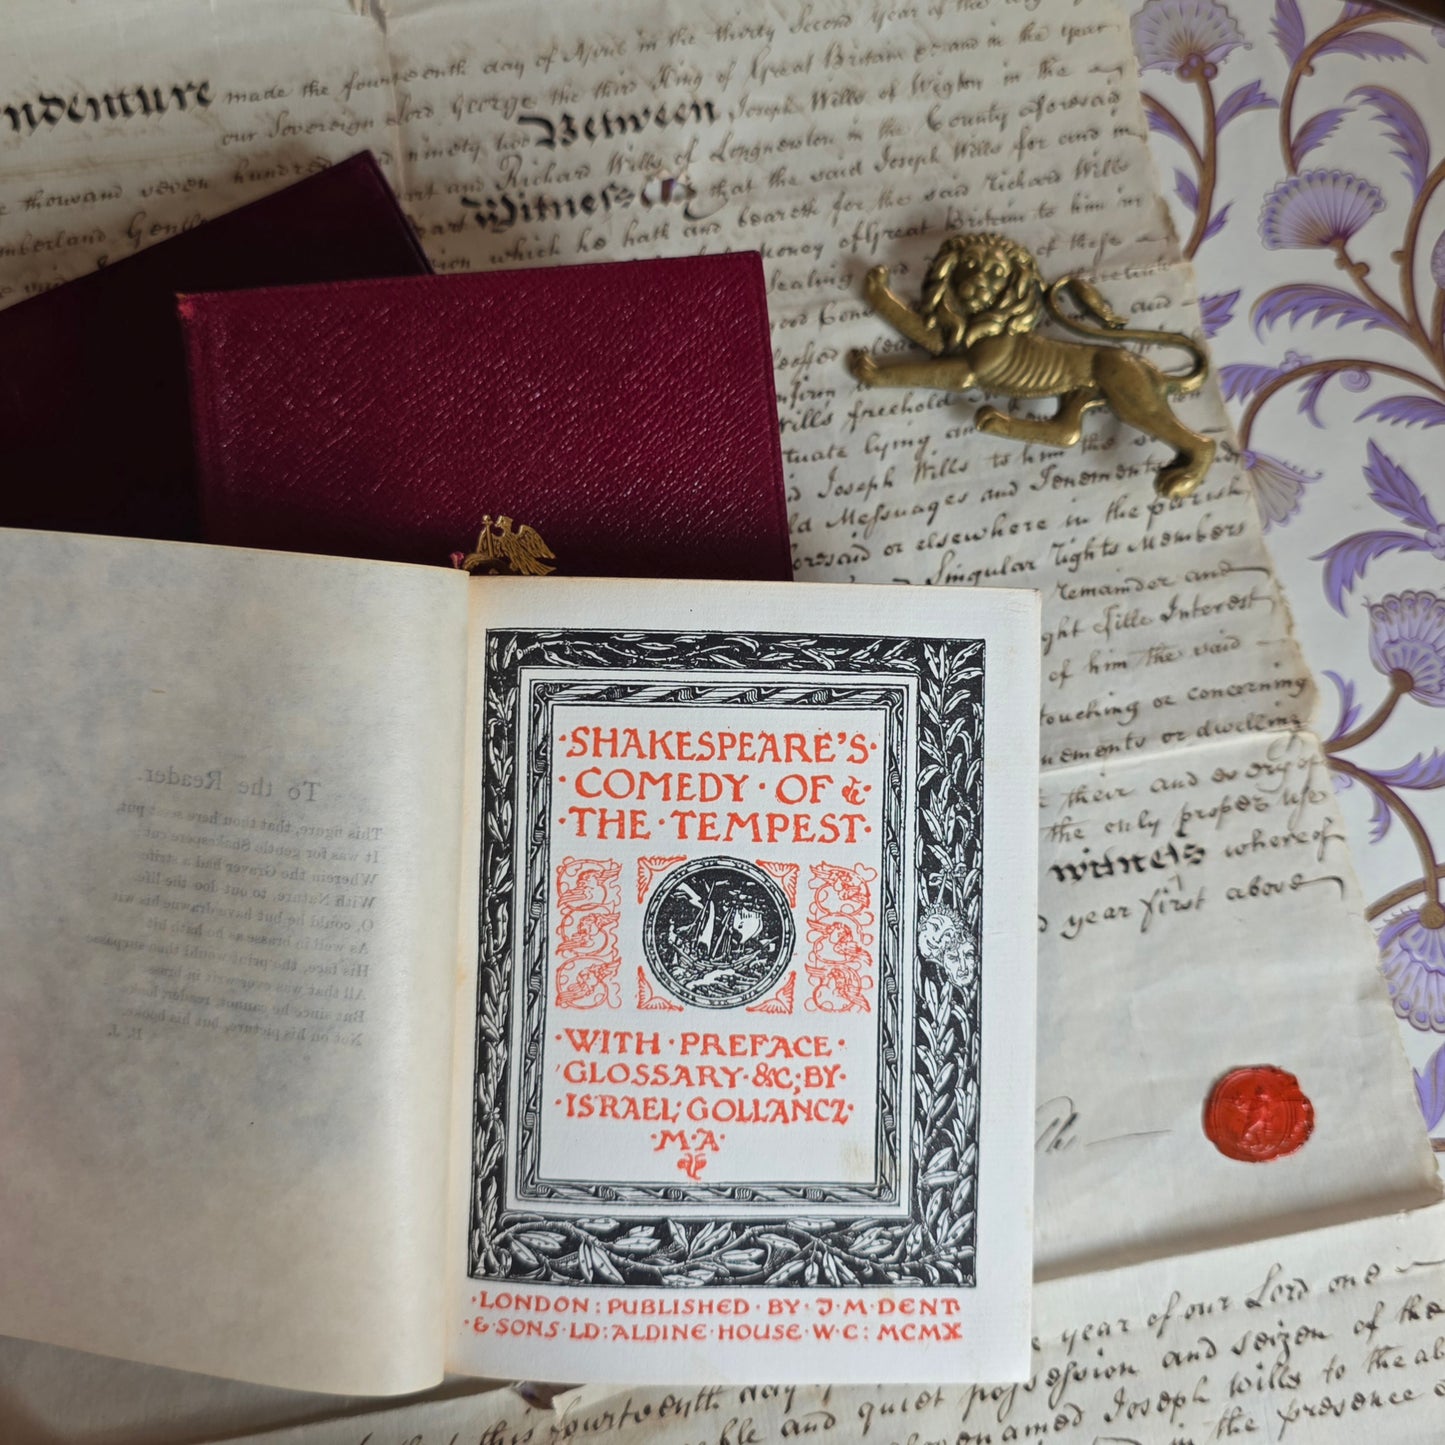 ndenture made the fourteenth day of April in the thirty Second Year of the
our Sovereign Lord George the third King of Great Britain &c and in the year
thousand seven hundred and ninety two Between Joseph Wills of Wigton in the
County aforesaid
mberland Gent part and Richard Wills of Longnewton in the
part Witnesseth that the said Joseph Wills for and in
which he hath and beareth for the said Richard Wills
money of Great Britain to him in
Sealing and of these
and
Wills freehold
situate lying and
Joseph Wills to him the
Messuages and Tenements
aforesaid or elsewhere in the parish
Singular Rights Members
remainder and
Right Title Interest
of him the said
touching or concerning
or dwelling
their and every of
the only proper use
witness whereof
year first above
To the Reader.
This figure, that thou here seest put,
It was for gentle Shakespeare cut;
Wherein the Graver had a strife
With Nature, to out doo the life:
O, could he but have drawne his wit
As well in brasse as he hath hit
His face, the print would then surpasse
All that was ever writ in brasse.
But since he cannot, reader, looke
Not on his picture, but his booke.
B. J.
·SHAKESPEARE'S·
·COMEDY·OF &
·THE·TEMPEST·
·WITH·PREFACE·
GLOSSARY·&C;BY·
·ISRAEL GOLLANCZ·
·M·A·
·LONDON: PUBLISHED·BY·J·M·DENT
·&·SONS·LD: ALDINE·HOUSE·W·C: MCMX
year of our Lord one
this fourteenth day
and quiet possession and seizen of the
named Joseph Wills to the
in the presence